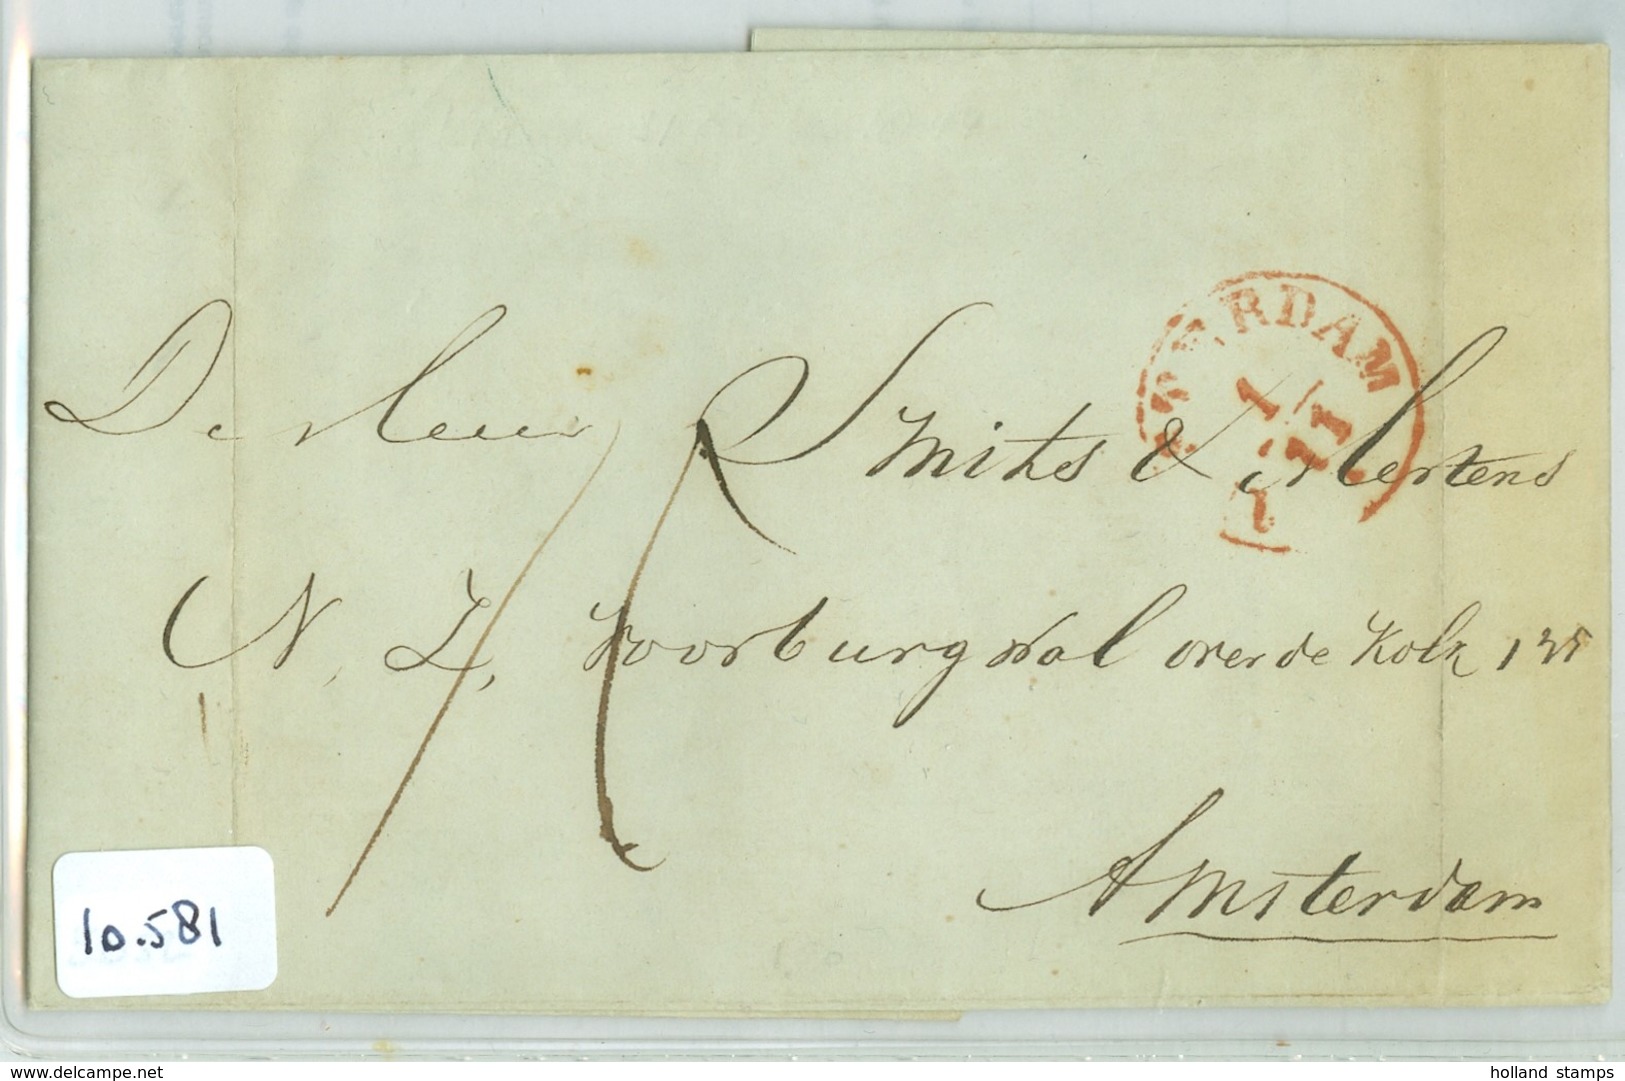 De Heer
Smits & Mertens
AMSTERDAM
1/11
N. Z. Voorburgwal over de Kolk 125
Amsterdam
10.581
www.delcampe.net
holland stamps